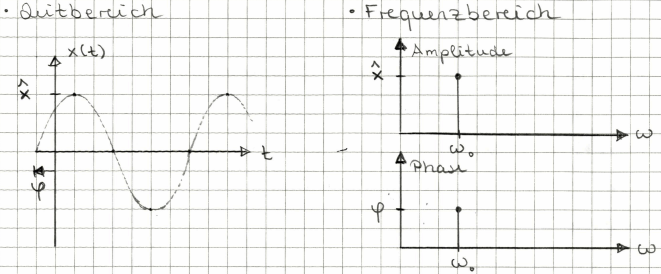 • Zeitbereich
x(t)
x̂
t
φ
• Frequenzbereich
Amplitude
x̂
ω
ω₀
Phase
φ
ω
ω₀